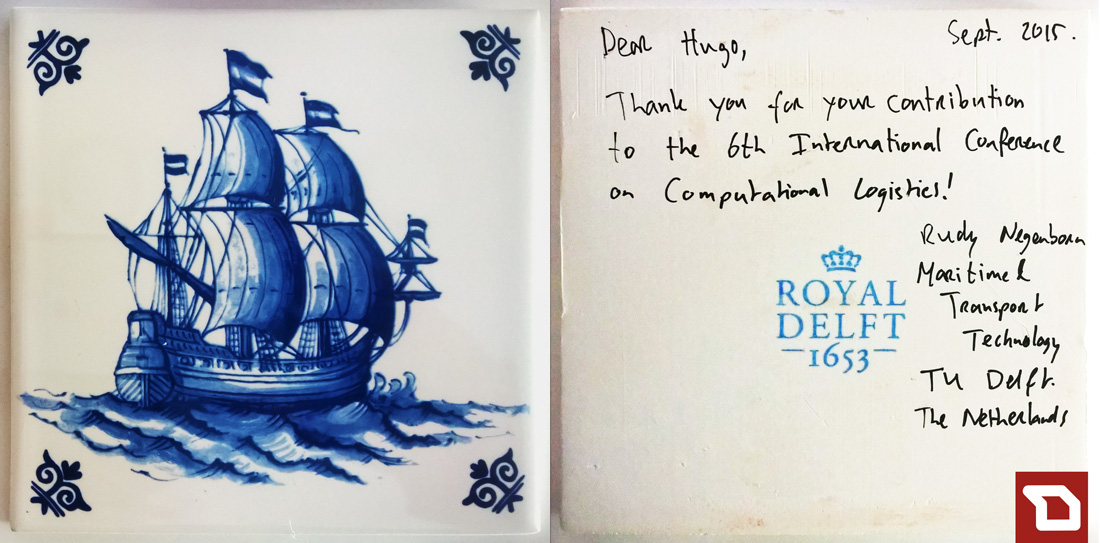 Dear Hugo,
Sept. 2015.
Thank you for your contribution
to the 6th International Conference
on Computational Logistics!
Rudy Negenborn
Maritime &
Transport
Technology
TU Delft.
The Netherlands
ROYAL
DELFT
1653